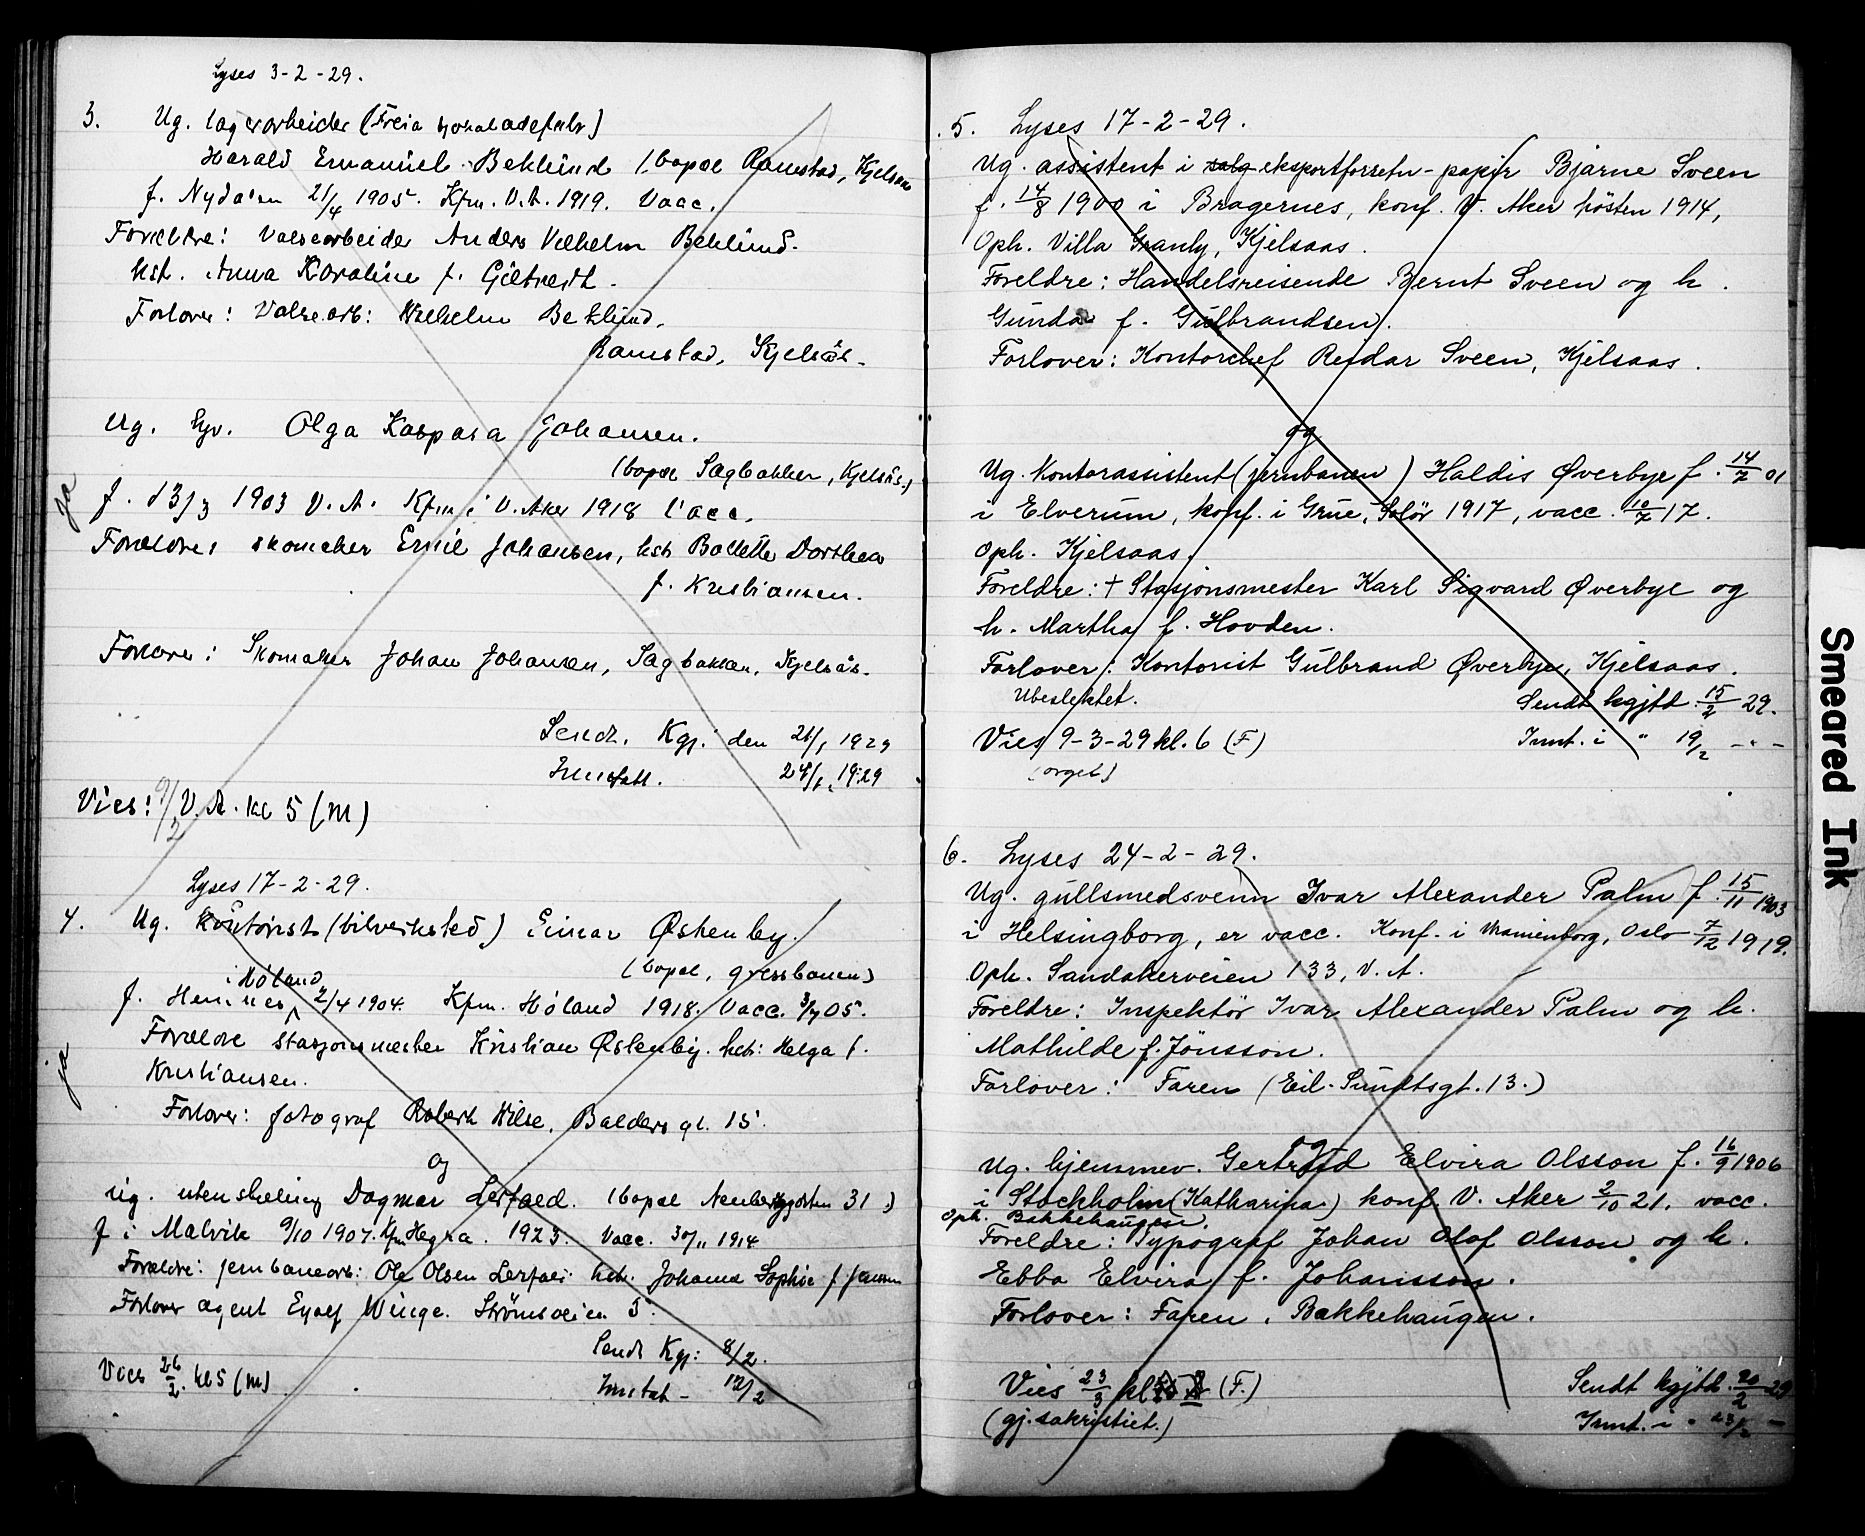 Lyses 3-2-29.
3. Ug. lagerarbeider (Freia sjokoladefabr)
Harald Emanuel Beklund (bopæl Ramstad, Kjelsås
f. Nydalen 21/4 1905. Kfm. V.A. 1919. Vacc.
Forældre: Valsearbeider Anders Vilhelm Beklund.
hst. Anna Karoline f.
Forlover: Valsearb: Wilhelm Beklund,
Ramstad, Kjelsås.
Ug. Olga Kaspara Johansen.
(bopæl Sagbakken, Kjelsås.)
ja
f. 13/3 1903 V.A. Kfm i V. Aker 1918 Vacc.
Forældre: skomaker Emil Johansen, hst Bollette Dorthea
f. Kristiansen.
Forlover: Skomaker Johan Johansen, Sagbakken, Kjelsås.
Sendt. Kgj. den 21/1 1929
Inntatt. 24/1 1929
Vies: 9/2 V.A. kl 5 (M)
Lyses 17-2-29.
4. Ug. kontorist (bilverksted) Einar Østenby.
(bopæl, gressbanen)
i Høland
f. Hemnes, 2/4 1904. Kfm. Høland 1918. Vacc. 3/7 05.
ja
Forældre stasjonsmester Kristian Østenby. hst: Helga f.
Kristiansen.
Forlover: fotograf Robert Wilse, Baldersgt. 15.
Og
ug. Dagmar Lerfald. (bopæl Neuberggaten 31)
f i Malvik 9/10 1907. Kfm Hegra. 1923. Vacc. 30/11 1914
Forældre: jernbanearb: Ole Olsen Lerfald hst. Johanna Sophie f Jensen
Forlover agent Eyolf Winge. Strømsveien 5.
Sendt Kgj: 8/2.
Inntat - 12/2
Vies 26/2. kl 5 (M)
5. Lyses 17-2-29.
Ug. assistent i salg eksportforretn - papir Bjarne Sveen
f. 14/8 1900 i Bragernes, konf. V. Aker høsten 1914,
Oph. Villa Granly, Kjelsaas.
Foreldre: Handelsreisende Bernt Sveen og h.
Gunda f. Gulbrandsen.
Forlover: Kontorchef Reidar Sveen, Kjelsaas.
og
Ug. kontorassistent (jernbanen) Haldis Øverbye f. 14/7 01
i Elverum, konf. i Grue, Solør 1917, vacc. 10/7 17.
Oph. Kjelsaas.
Foreldre: + Stasjonsmester Karl Sigvard Øverbye og
h. Martha f. Hovden.
Forlover: Kontorist Gulbrand Øverbye, Kjelsaas.
Ubeslektet. Sendt kgjtd. 15/2 29.
Vies 9-3-29 kl. 6 (F) Innt. i " 19/2 - " -
(orgel)
6. Lyses 24-2-29.
Ug. gullsmedsvenn Ivar Alexander Palm f. 15/11 1903
i Helsingborg, er vacc. Konf. i Uranienborg, Oslo 7/12 1919.
Oph. Sandakerveien 133, V.A.
Foreldre: Inspektør Ivar Alexander Palm og h.
Mathilde f. Jönsson.
Forlover: Faren (Eil. Sundtsgt. 13.)
og
Ug. hjemmev. Gertrud Elvira Olsson f. 16/9 1906
i Stockholm (Katharina) konf. V. Aker 2/10 21. vacc.
Oph. Bakkehaugen.
Foreldre: Typograf Johan Olof Olsson og h.
Ebba Elvira f. Johansson.
Forlover: Faren, Bakkehaugen.
Vies 23/3 kl (F.) Sendt kgjtd. 20/2 29
(gj. sakristiet.) Innt. i " 23/2 -
Smeared Ink